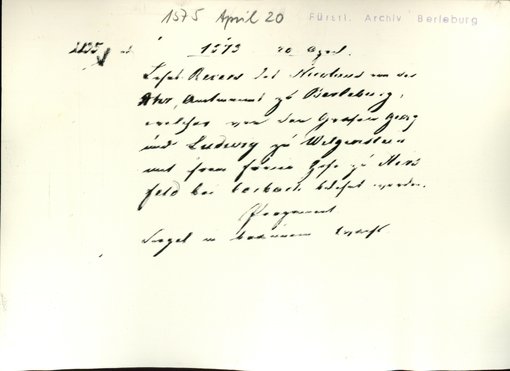 1575 April 20
Fürstl. Archiv Berleburg
1573 20 April.
Lehns Revers des Nicolaus von der
Ahr, Amtmanns zu Berleburg,
welcher von den Grafen Georg
und Ludwig zu Witgenstein
mit freien Hofe zu
feld bei belehnt worden.
Pergament.
Siegel in